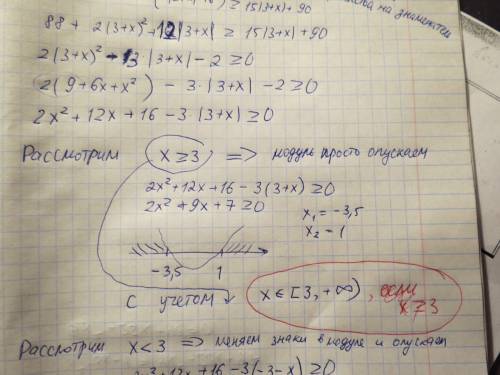 ≥ 15|3+x|+90
на знаменатель
88 + 2(3+x)² + 12|3+x| ≥ 15|3+x| + 90
2(3+x)² - 3·|3+x| - 2 ≥ 0
2(9+6x+x²) - 3·|3+x| - 2 ≥ 0
2x² + 12x + 16 - 3·|3+x| ≥ 0
Рассмотрим x ≥ 3 => модуль просто опускаем
2x² + 12x + 16 - 3(3+x) ≥ 0
2x² + 9x + 7 ≥ 0
x₁ = -3,5
x₂ = 1
-3,5 1
с учетом x ∈ [3, +∞), если
x ≥ 3
Рассмотрим x < 3 => меняем знаки в модуле и опускаем
+ 12x + 16 - 3(-3-x) ≥ 0